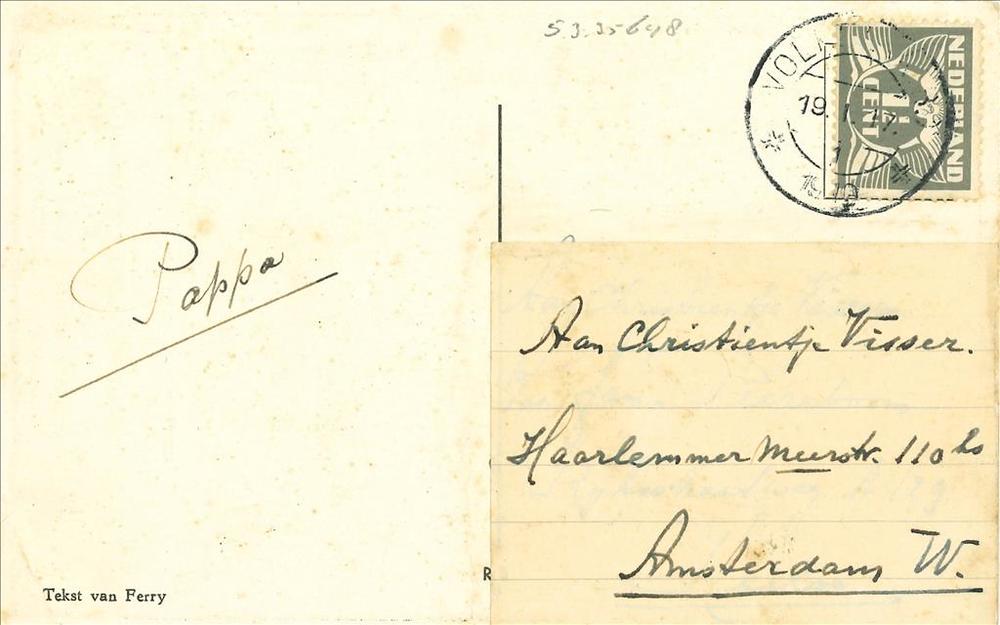 5.3.35648
NEDERLAND
1½
CENT
19. 1. 17.
1
Pappa
Aan Christientje Visser.
Haarlemmer Meerstr. 110 hs
Amsterdam W.
R
Tekst van Ferry